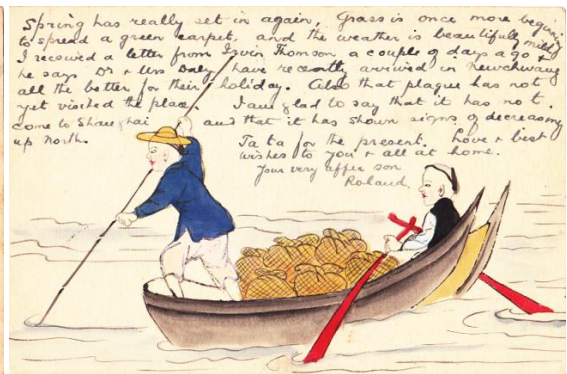 Spring has really set in again, Grass is once more beginning
to spread a green carpet, and the weather is beautifully mild
I received a letter from Irvin Thomson a couple of days ago &
he says Dr & Mrs Daly have recently arrived in Newchwang
all the better for their holiday. Also that plague has not
yet visited the place. I am glad to say that it has not
come to Shanghai and that it has shown signs of decreasing
up North.
Ta ta for the present. Love & best
wishes to you & all at home.
Your very affec son
Roland